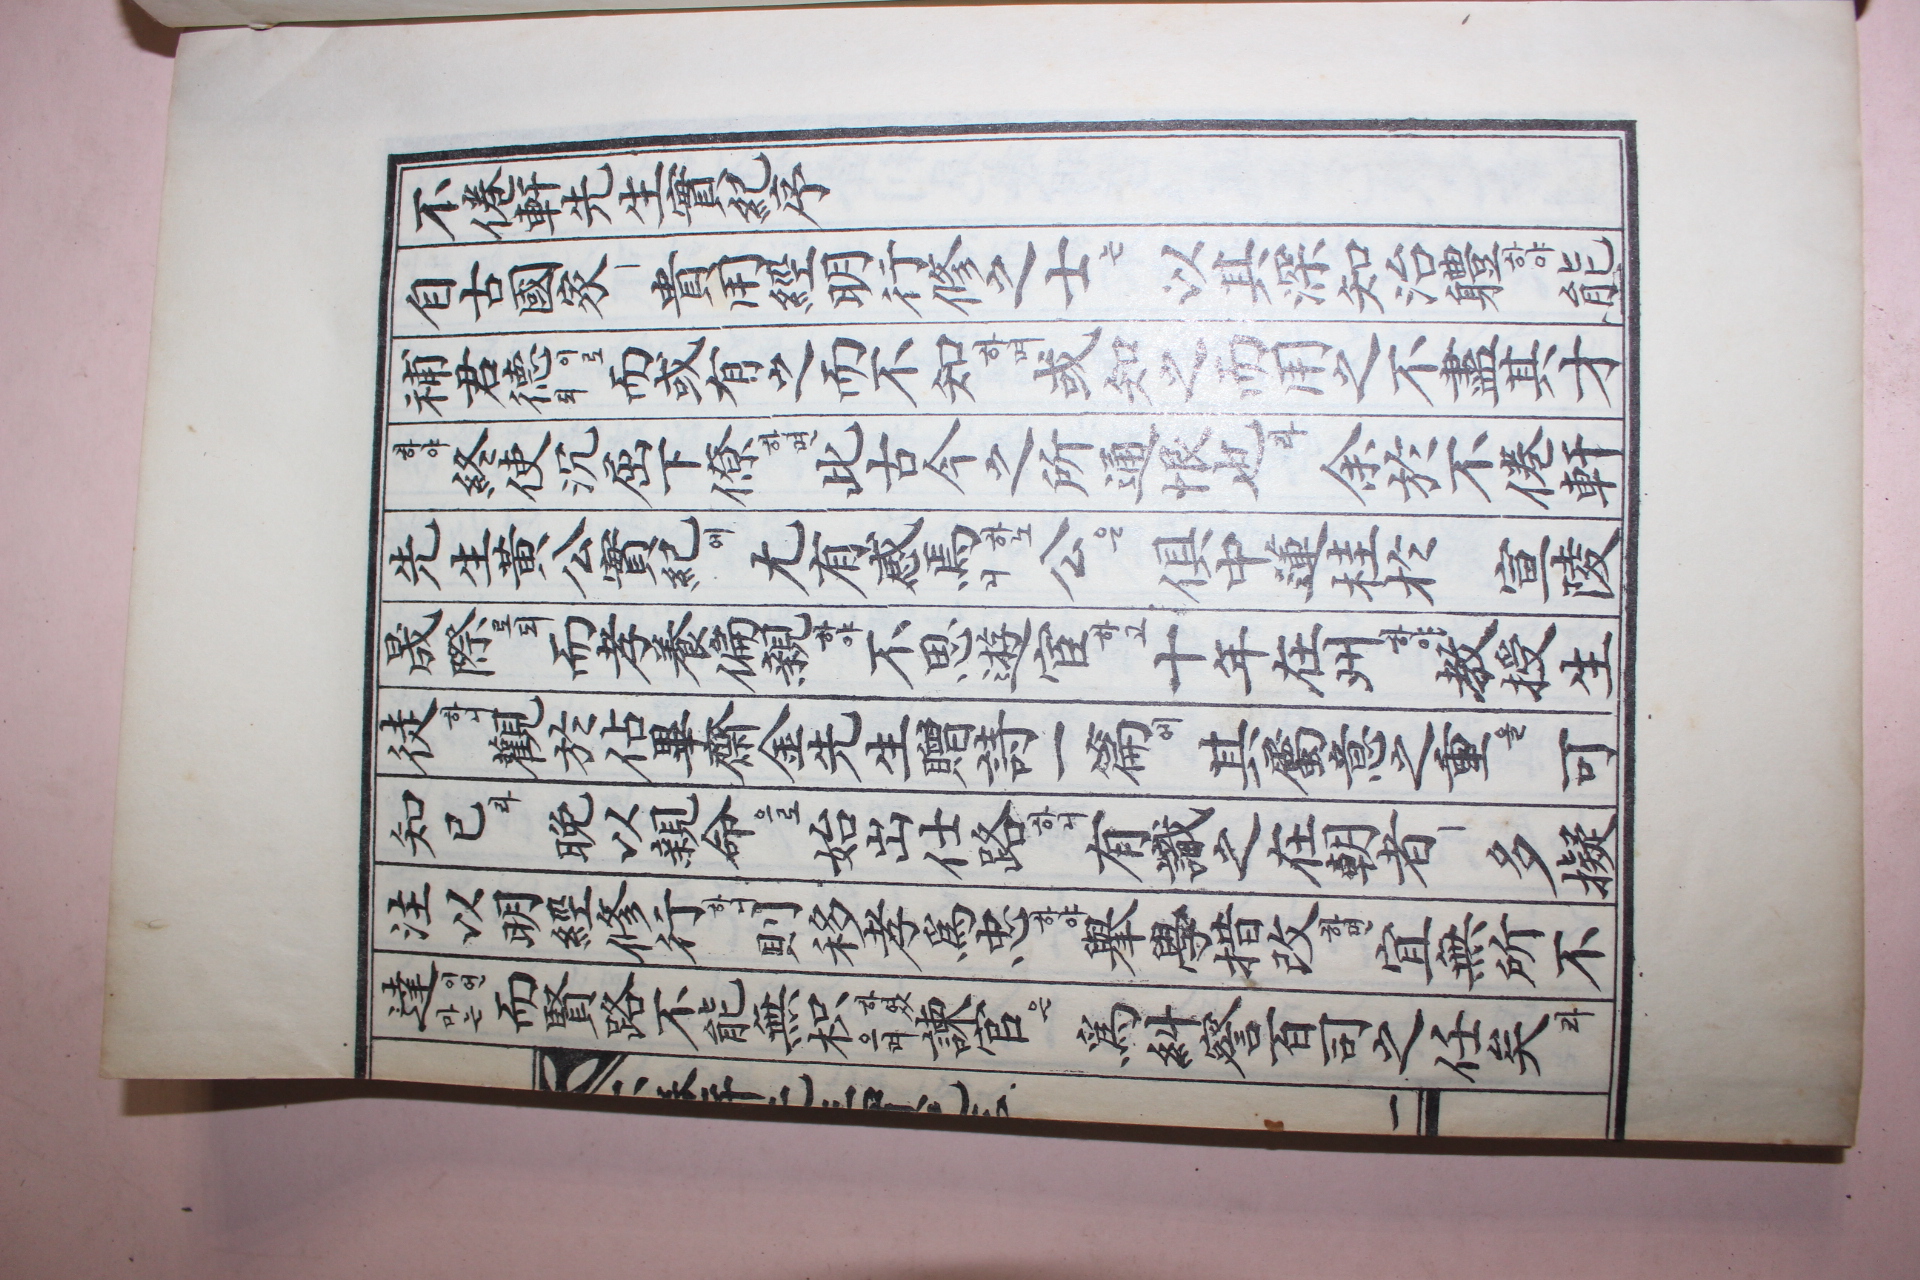 不倦軒先生實紀序
自古國家ㅣ貴用經明行修之士는以其深知治體하야能
補君德이로되而或有之而不知하며或知之而用之不盡其才
하야終使沉屈下僚하면此古今之所通恨也라余於不倦軒
先生黃公實紀에尤有感焉하노니公은俱中蓮桂於宣陵
晟際로되而孝養偏親하야不思遊宦하고十年在州하야敎授生
徒하니觀於佔畢齋金先生贈詩一篇에其屬意之重을可
知已라晩以親命으로始出仕路하니有識之在朝者ㅣ多擬
注以明經修行하니則移孝爲忠하야擧措政하면宜無所不
達이언마는而賢路不能無枳하얏으며諫官은爲糾繆百司之任矣라
一